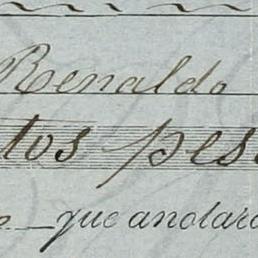 Renaldo
tos pes
que anotará